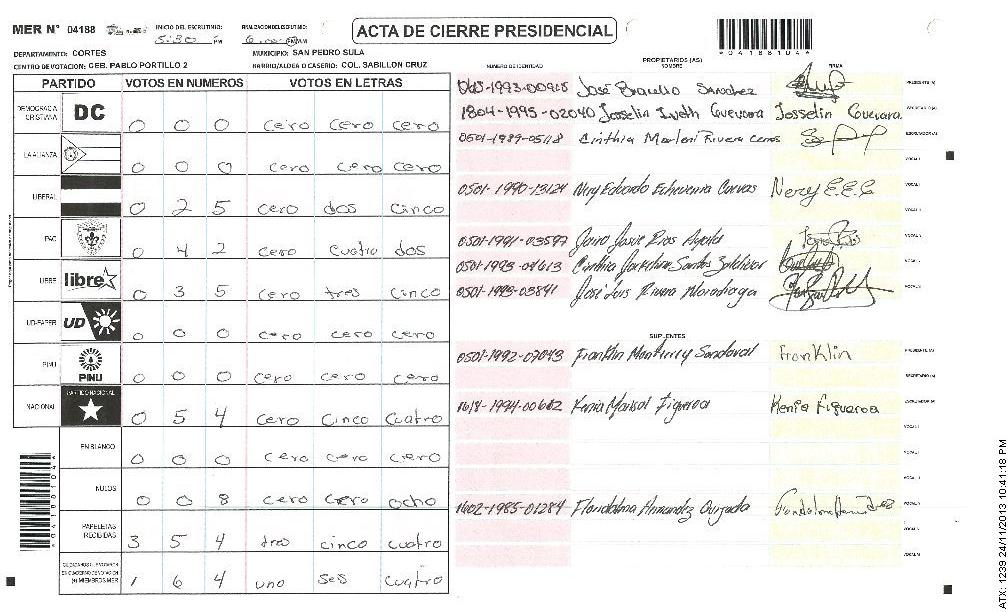 MER N° 04188 INICIO DEL ESCRUTINIO: 5:30 PM FINALIZACION DEL ESCRUTINIO: PM
ACTA DE CIERRE PRESIDENCIAL
*04188104*
DEPARTAMENTO: CORTES MUNICIPIO: SAN PEDRO SULA
CENTRO DE VOTACION: CEB. PABLO PORTILLO 2 BARRIO/ALDEA O CASERIO: COL. SABILLON CRUZ
PARTIDO VOTOS EN NUMEROS VOTOS EN LETRAS
DEMOCRACIA CRISTIANA DC 0 0 0 cero cero cero
LA ALIANZA 0 0 0 cero cero cero
LIBERAL 0 2 5 cero dos cinco
PAC 0 4 2 cero cuatro dos
LIBRE libre 0 3 5 cero tres cinco
UD-FAPER UD 0 0 0 cero cero cero
PINU PINU 0 0 0 cero cero cero
NACIONAL PARTIDO NACIONAL 0 5 4 cero cinco cuatro
EN BLANCO 0 0 0 cero cero cero
NULOS 0 0 8 cero cero ocho
PAPELETAS RECIBIDAS 3 5 4 tres cinco cuatro
(+) MIEMBROS MER 1 6 4 uno seis cuatro
PROPIETARIOS (AS)
NUMERO DE IDENTIDAD NOMBRE FIRMA
José Sanchez PRESIDENTE (A)
1804-1995-02040 Josselin Iveth Guevara Josselin Guevara SECRETARIO (A)
0501-1989-05118 Cinthia Marleni Rivera ESCRUTADOR (A)
VOCAL I
0501-1990-13124 Nery Eduardo Echeverria Cuevas Nery E.E.C VOCAL II
0501-1991-03597 Josue Rios Ayala
0501-1993-04613 Cinthia Santos Zaldivar
0501-1993-03841 José Luis Rivera
SUPLENTES
0501-1992-07043 Franklin Monterrey Sandoval Franklin PRESIDENTE (A)
SECRETARIO (A)
Kenia Marisol Figueroa Kenia Figueroa ESCRUTADOR (A)
VOCAL I
1602-1985-01284 Hernandez
*04188104*
ATX: 1239 24/11/2013 10:41:18 PM